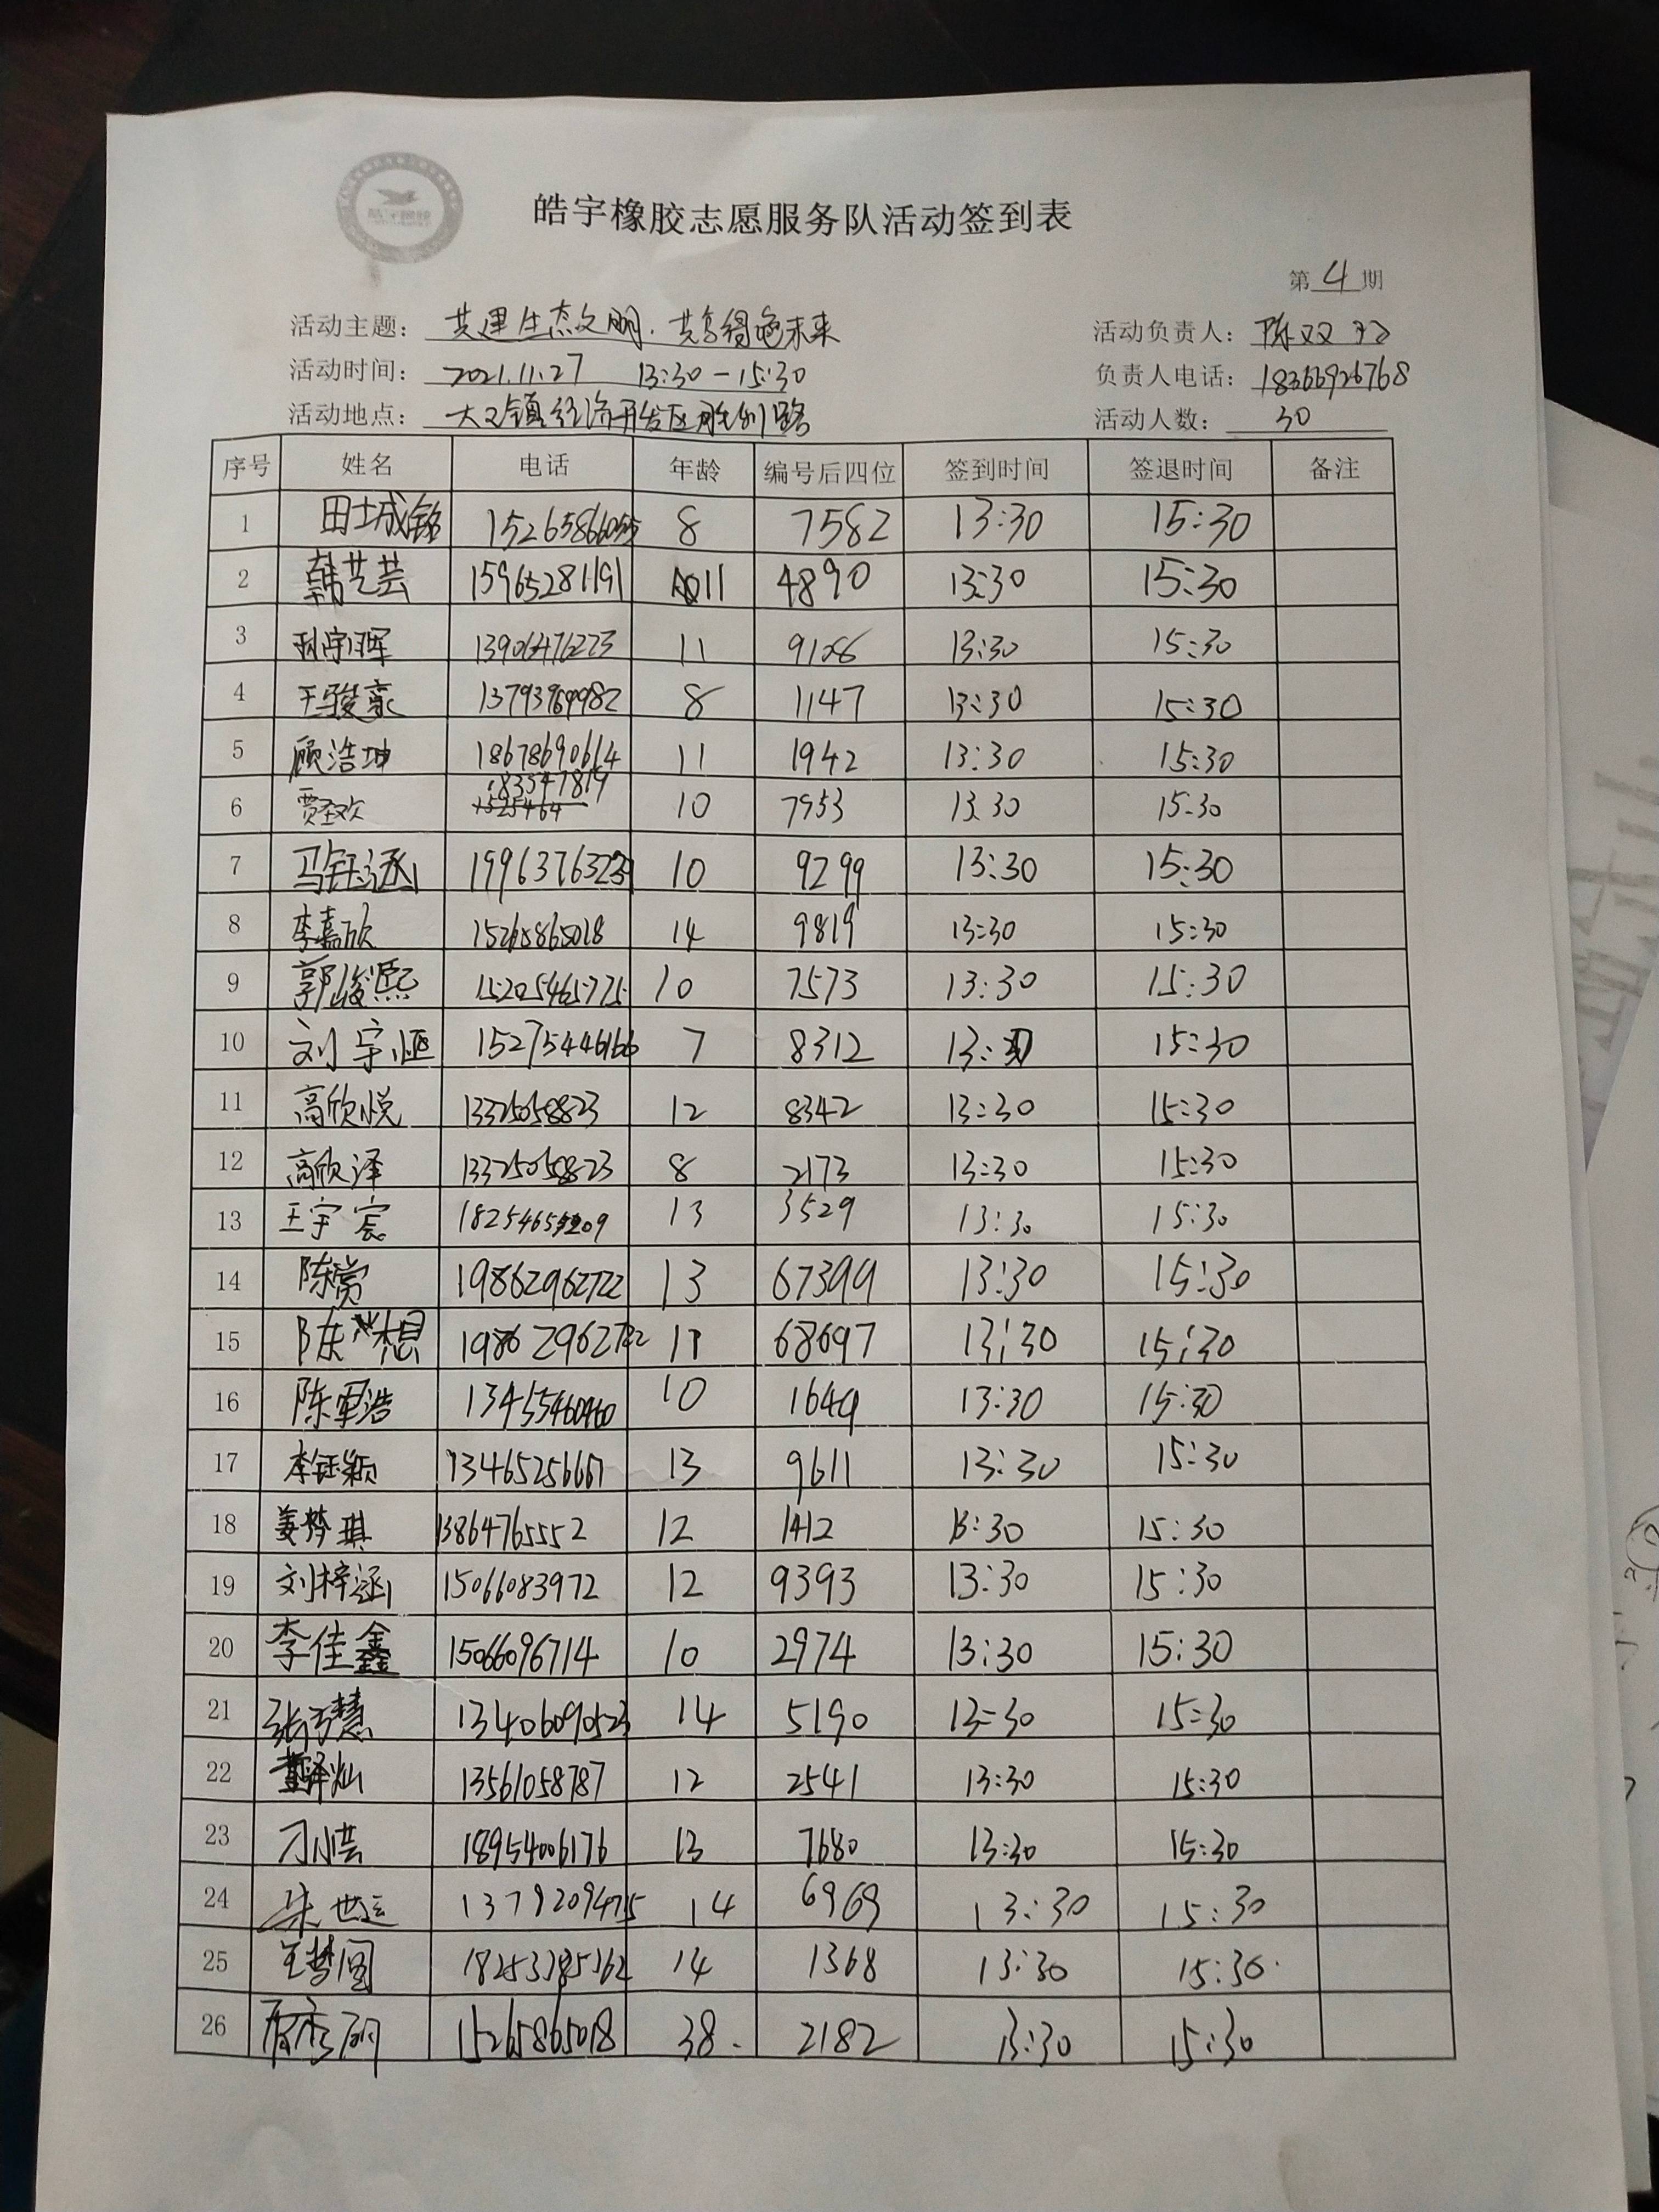 皓宇橡胶志愿服务队活动签到表
第 4 期
活动主题： 共建生态文明.共享绿色未来 活动负责人：
活动时间： 2021.11.27 13:30-15:30 负责人电话： 18366926768
活动地点： 大王镇经济开发区胜利路 活动人数： 30
序号 姓名 电话 年龄 编号后四位 签到时间 签退时间 备注
1 田士城铭 15265866055 8 7582 13:30 15:30
2 韩艺芸 15965281191 11 4890 13:30 15:30
3 13906476223 11 13:30 15:30
4 王骏豪 8 1147 13:30 15:30
5 顾浩坤 18678690614 11 1942 13:30 15:30
6 贾圣欢 10 7953 13 30 15:30
7 马钰涵 10 9299 13:30 15:30
8 李嘉欣 15265865018 14 9819 13:30 15:30
9 郭峻熙 15205465775 10 7573 13:30 15:30
10 刘宇恒 15275446166 7 8312 13:30 15:30
11 高欣悦 13325058823 12 8342 13:30 15:30
12 高欣泽 13325058823 8 2173 13:30 15:30
13 王宇宸 13 3529 13:30 15:30
14 陈赏 19862962722 13 67399 13:30 15:30
15 陈想 11 68697 13:30 15:30
16 陈军浩 13455460460 10 1649 13:30 15:30
17 李钰颖 13465256667 13 9611 13:30 15:30
18 姜梦琪 13864765552 12 1412 13:30 15:30
19 刘梓涵 15066083972 12 9393 13:30 15:30
20 李佳鑫 15066096714 10 2974 13:30 15:30
21 张子慧 13406090523 14 5190 13:30 15:30
22 13561058787 12 2541 13:30 15:30
23 刁小芸 18954006176 13 7680 13:30 15:30
24 朱世运 1379209475 14 6969 13:30 15:30
25 王梦圆 18253785262 14 1368 13:30 15:30
26 15265865018 38 2182 13:30 15:30